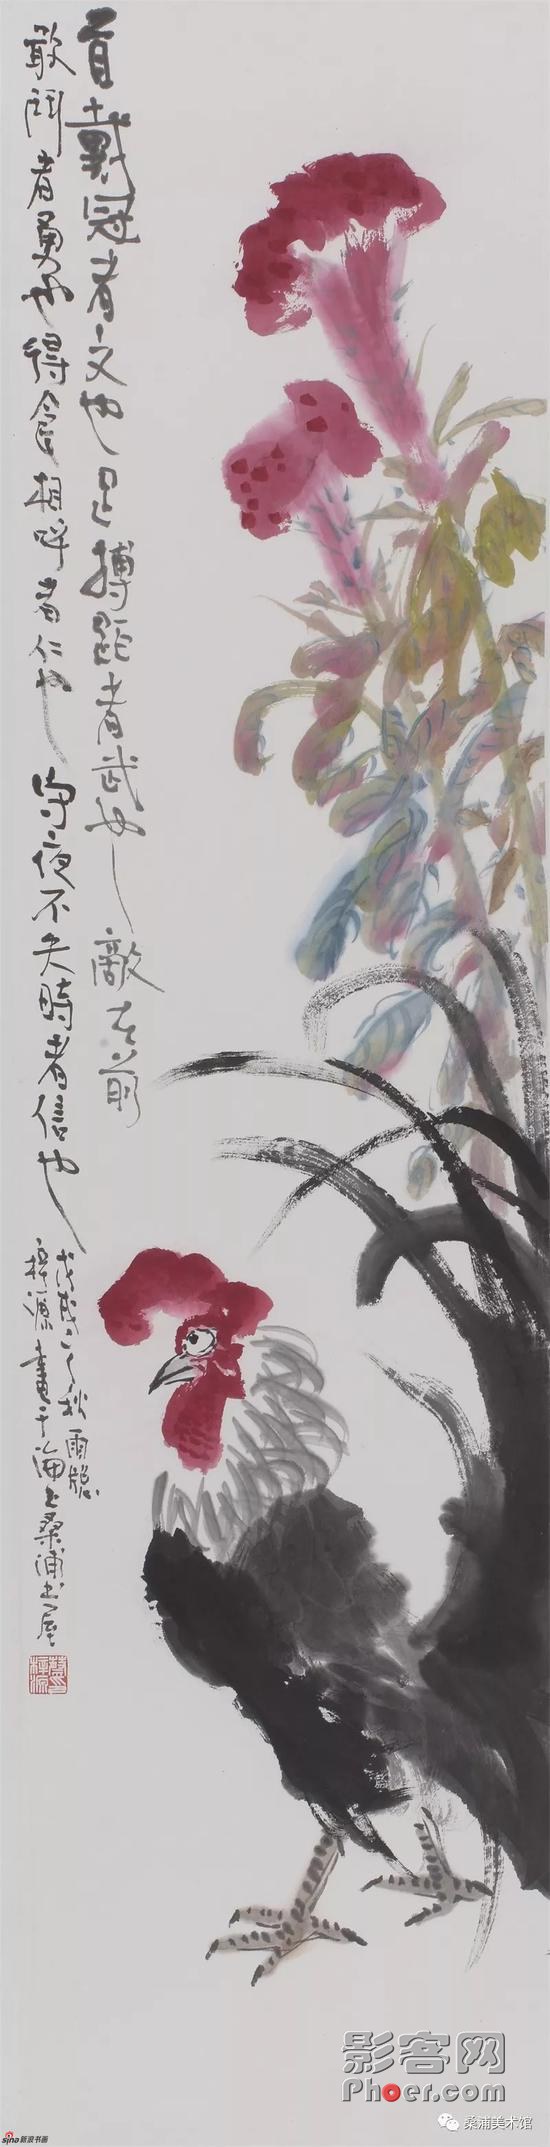 首戴冠者文也足搏距者武也敵在前
敢鬥者勇也得食相呼者仁也守夜不失時者信也
戊戌之秋雨牕
梓源畫于海上桑浦書屋
影客网
Phoer.com
桑浦美术馆
sina新浪书画